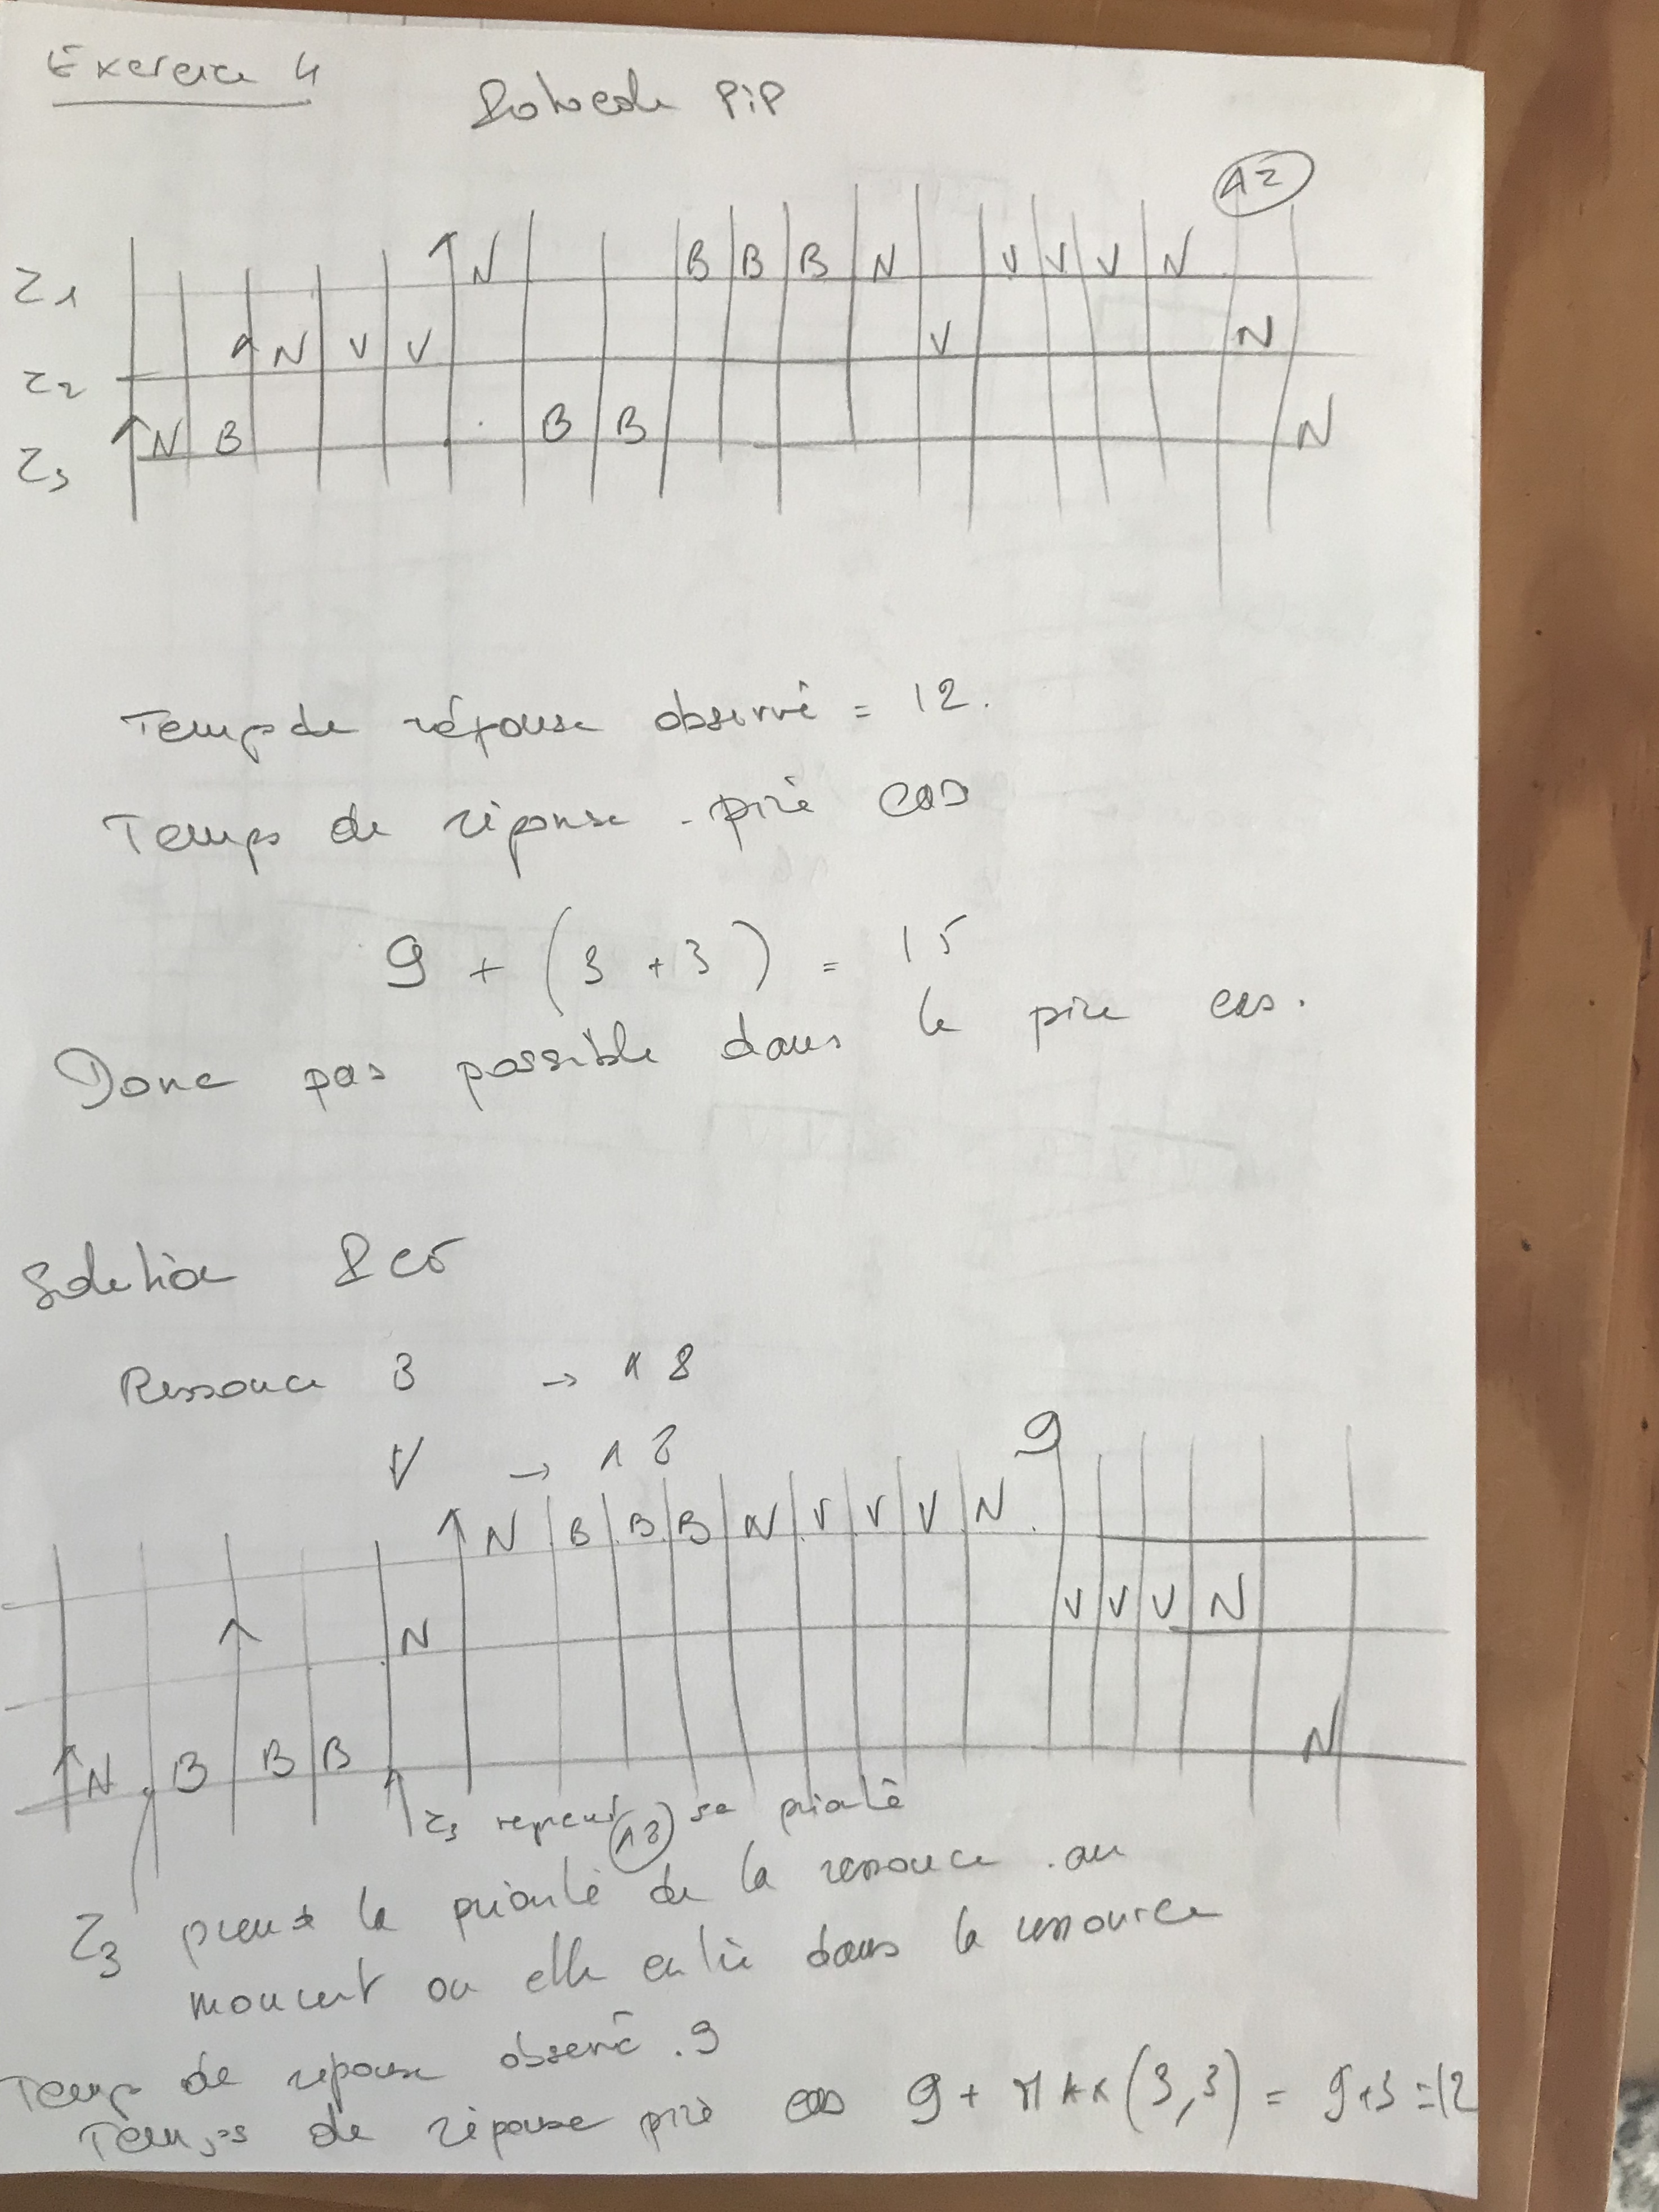 Exercice 4
Protocole PiP
12
τ1 N B B B N V V V N
τ2 N V V V N
τ3 N B B B N
Temps de réponse observé = 12.
Temps de réponse pire cas
9 + (3 + 3) = 15
Donc pas possible dans le pire cas.
Solution PCP
Ressource B → 18
V → 18
9
N B B B N V V V N
N V V V N
N B B B N
τ3 reprend sa priorité
τ3 prend la priorité 18 de la ressource au
moment ou elle entre dans la ressource
Temps de reponse observé . 9
Temps de réponse pire cas 9 + MAX (3,3) = 9+3 = 12